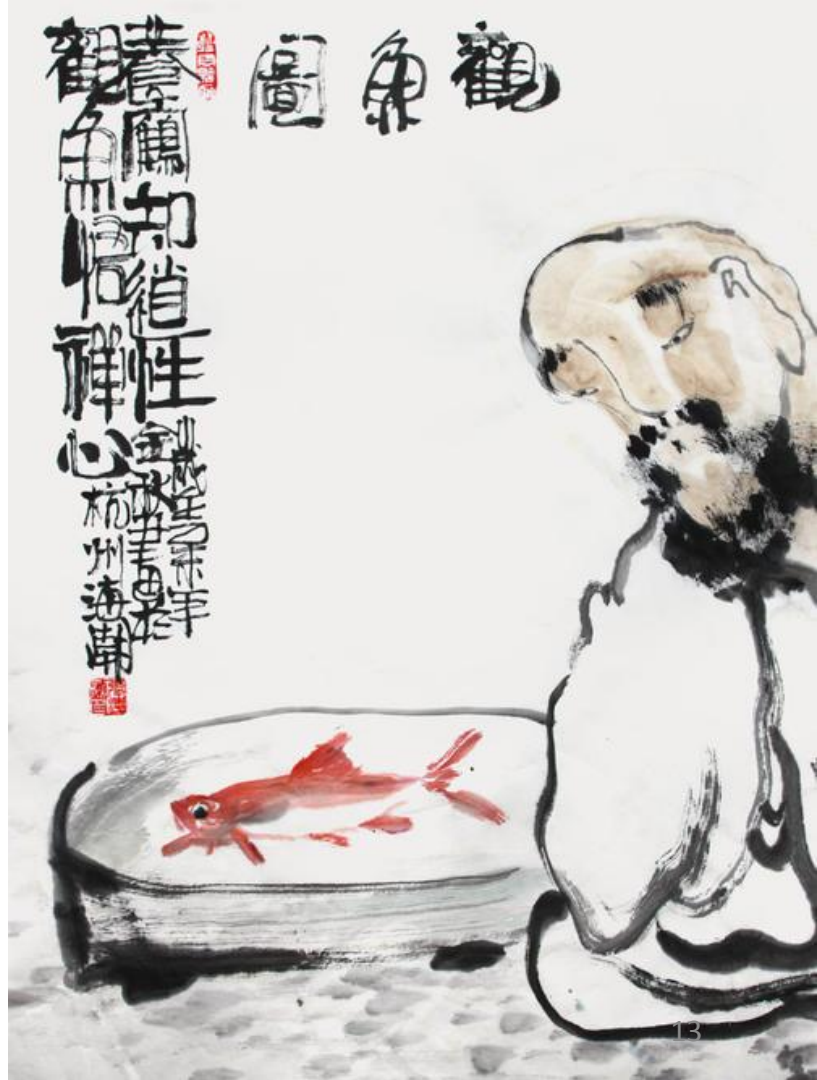 觀魚圖
養鷹知道性
觀魚悟禪心
歲在乙未年
金秋
杭州海
13